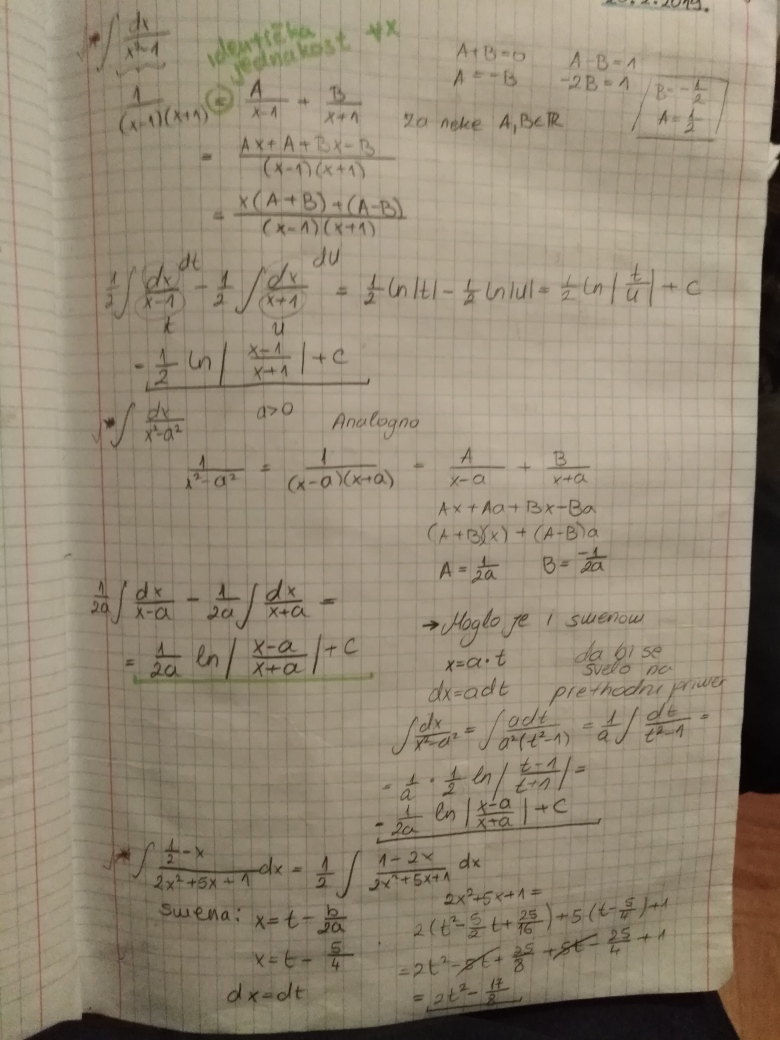 * ∫ dx/(x²-1)
identička jednakost ∀x
1/((x-1)(x+1)) = A/(x-1) + B/(x+1) za neke A,B∈R
A+B=0 A-B=1
A=-B -2B=1
B=-1/2
A=1/2
= (Ax+A+Bx-B)/((x-1)(x+1))
= (x(A+B)+(A-B))/((x-1)(x+1))
1/2 ∫ dx/(x-1) - 1/2 ∫ dx/(x+1) = 1/2 ln|t| - 1/2 ln|u| = 1/2 ln|t/u| + C
dt du
t u
= 1/2 ln|(x-1)/(x+1)| + C
* ∫ dx/(x²-a²) a>0 Analogno
1/(x²-a²) = 1/((x-a)(x+a)) = A/(x-a) + B/(x+a)
Ax+Aa+Bx-Ba
(A+B)(x) + (A-B)a
A = 1/2a B = -1/2a
1/2a ∫ dx/(x-a) - 1/2a ∫ dx/(x+a) =
= 1/2a ln|(x-a)/(x+a)| + C
→ Moglo je i smenom
x=a·t da bi se svelo na
dx=adt prethodni primer
∫ dx/(x²-a²) = ∫ adt/(a²(t²-1)) = 1/a ∫ dt/(t²-1) =
= 1/a · 1/2 ln|(t-1)/(t+1)| =
= 1/2a ln|(x-a)/(x+a)| + C
* ∫ (1/2-x)/(2x²+5x+1) dx = 1/2 ∫ (1-2x)/(2x²+5x+1) dx
smena: x=t-b/2a
x=t-5/4
dx=dt
2x²+5x+1=
2(t²-5/2 t+25/16)+5(t-5/4)+1
=2t²-5t+25/8+5t-25/4+1
=2t²-17/8